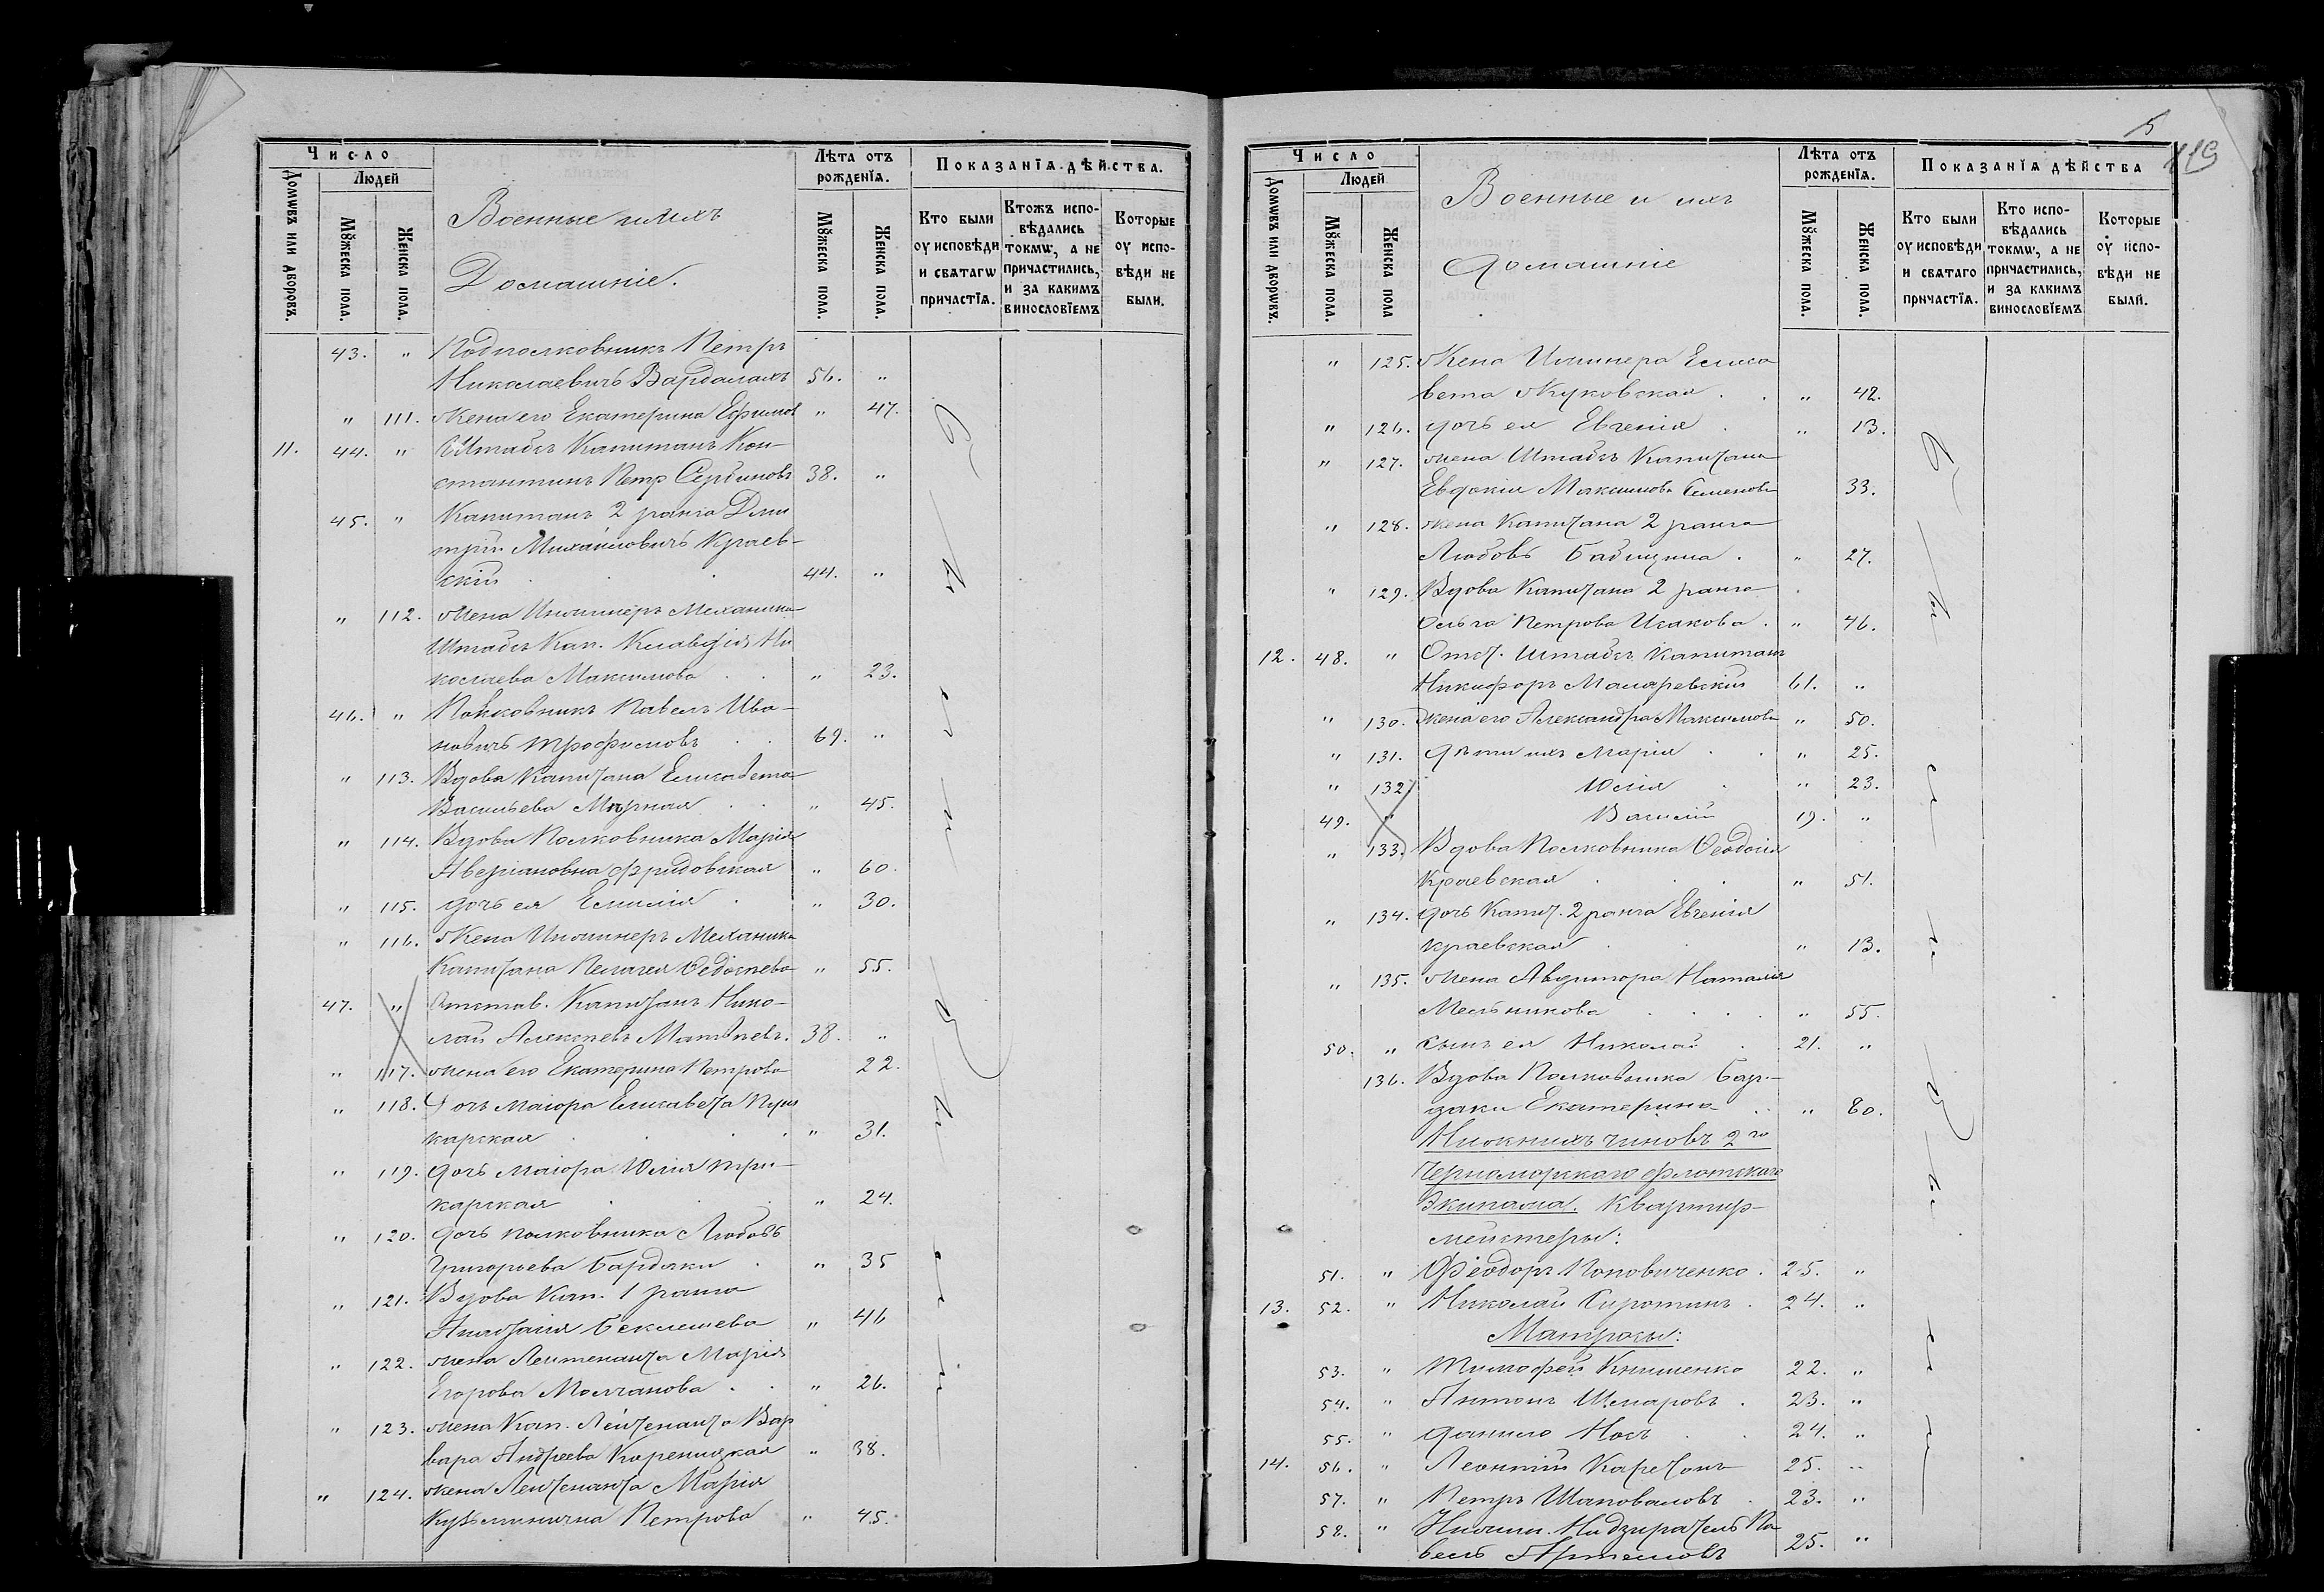 Число
Людей
Домѡвъ или дворовъ.
Мꙋжеска пола.
Женска пола.
Военные и ихъ
Домашніе.
Лѣта отъ
рожденїѧ.
Мꙋжеска пола.
Женска пола.
Показанїѧ дѣйства.
Кто были оу исповѣди и свѧтагѡ причастїѧ.
Ктожъ исповѣдались токмѡ, а не причастились, и за какимъ винословїемъ
Которые оу исповѣди не были.
43. " Подполковникъ Петръ
Николаевичъ Вардалахъ 56. "
" 111. Жена его Екатерина Ефимов " 47.
11. 44. " Штабсъ Капитанъ Кон-
стантинъ Петр 38. "
45. " Капитанъ 2 ранга Дми
трій Михаиловичъ Краев-
скій 44. "
" 112. Жена Инжинеръ Механика
Штабсъ Кап. Клавдія Ни
колаева Максимова " 23.
46. " Полковникъ Павелъ Ива-
новичъ Трофимовъ 69. "
" 113. Вдова Капитана Елисавета
Васильева " 45.
" 114. Вдова Полковника Марія
Аверіановна Фридовская " 60.
" 115. дочь ея Емилія " 30.
" 116. Жена Инжинеръ Механика
Капитана Пелагея Федосѣева " 55.
47. " Отстав. Капитанъ Нико-
лай Алексѣевъ Матвѣевъ. 38. "
" 117. Жена его Екатерина Петрова 22.
" 118. Дочь маіора Елисавета
карская " 31.
" 119. дочь Маіора Юлія При-
карская " 24.
" 120. дочь полковника Любовь
Григорьева Бардаки " 35
" 121. Вдова Кап. 1 ранга
Анастасія Беклешева " 46
" 122. жена Лейтенанта Марія
Егорова Молчанова " 26.
" 123. жена Кап. Лейтенанта Вар
вара Андреева Кореницкая " 38.
" 124. жена Лейтенанта Марія
Кузьминична Петрова " 45.
5
119
Число
Людей
Домѡвъ или дворѡвъ.
Мꙋжеска пола.
Женска пола
Военные и ихъ
домашніе
Лѣта отъ
рожденїѧ.
Мꙋжеска пола.
Женска пола.
Показанїѧ дѣйства
Кто были оу исповѣди и свѧтаго причастїѧ.
Кто исповѣдались токмѡ, а не причастились, и за какимъ винословїемъ
Которые оу исповѣди не были.
" 125. Жена Инжинера Елиса
вета Жуковская " 42.
" 126. дочь ея Евгенія " 13.
" 127. жена Штабсъ Капитана
Евдокія Максимова Семенова 33.
" 128. жена Капитана 2 ранга
Любовь Бабицина " 27.
" 129. Вдова Капитана 2 ранга
Ольга Петрова Исакова " 46.
12. 48. " Отст. Штабсъ Капитанъ
Никифоръ Маляревскій 61. "
" 130. жена его Александра Максимова " 50.
" 131. дѣти ихъ Марія " 25.
" 132 Юлія " 23.
49. " Василій 19. "
" 133. Вдова Полковника Феодосія
Краевская " 51.
" 134. дочь Капит. 2 ранга Евгенія
Краевская " 13.
" 135. жена Авдитора Наталія
Мельникова " 55.
50. " сынъ ея Николай 21. "
136. Вдова Полковника Бар-
даки Екатерина " 80.
Нижнихъ чиновъ 2го
Черноморскаго флотскаго
Экипажа. Квартир-
мейстеры:
51. " Феодоръ Поповиченко 25. "
13. 52. " Николай Сиротинъ 24. "
Матросы:
53. " Тимофей Книшенко 22. "
54. " Антонъ Шмаровъ 23. "
55. " Данило Носъ 24. "
14. 56. " Леонтій 25. "
57. " Петръ Шаповаловъ 23. "
58. " Надзиратель Па
велъ Артемовъ 25. "